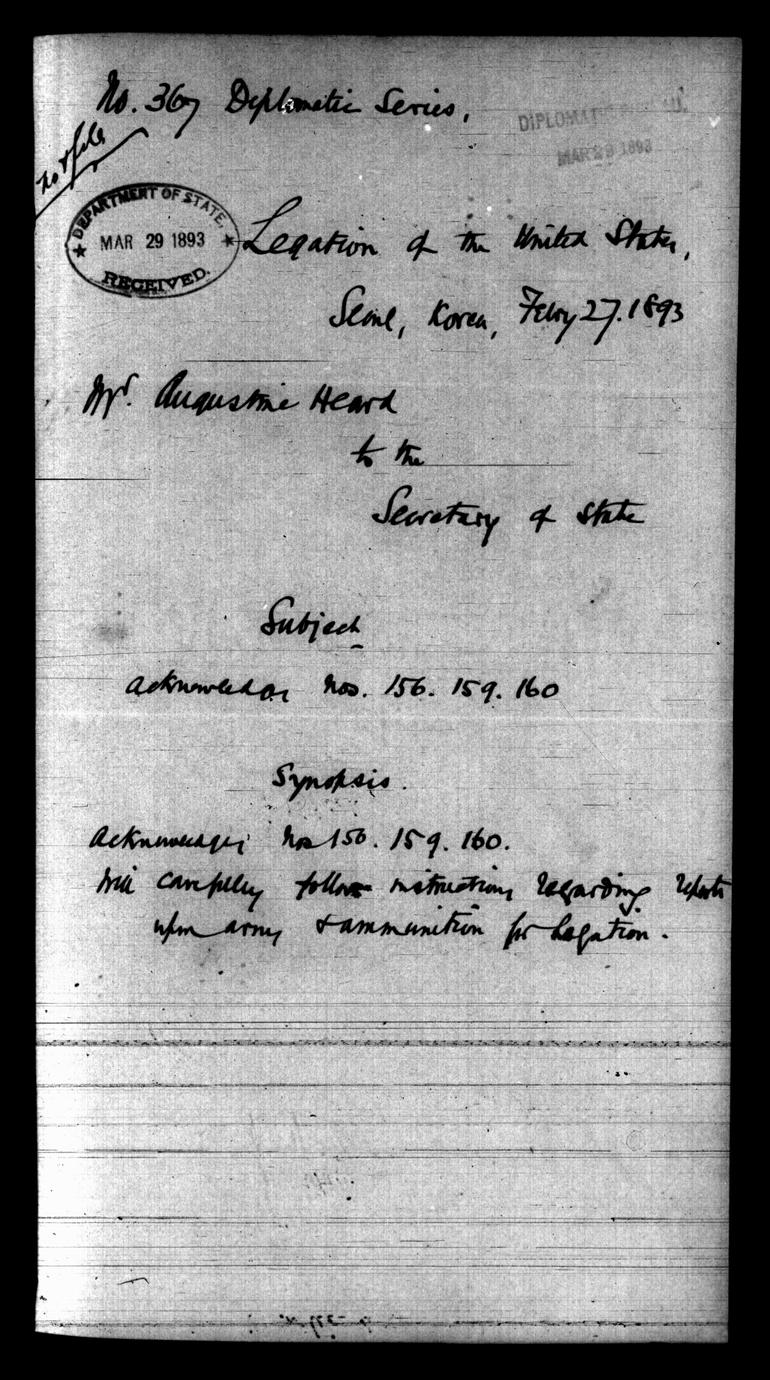 No. 367 Diplomatic Series,
DIPLOMATIC
MAR 29 1893
not file
DEPARTMENT OF STATE.
MAR 29 1893
RECEIVED.
Legation of the United States,
Seoul, Korea, Febry 27. 1893
Mr. Augustine Heard
to the
Secretary of State
Subject
Acknowledges Nos. 156. 159. 160
Synopsis.
Acknowledges Nos 156. 159. 160.
Will carefully follow instructions regarding reports
upon arms & ammunition for Legation.